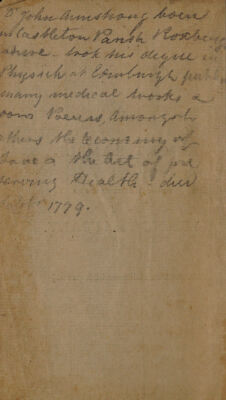 Dr John Armstrong born
in Castleton Parish Roxburgh
shire - took his degree in
Physick at Edinburgh publ
many medical works &
some Poems, Amongst
others the Economy of
Love & the Art of pre
serving Health - died
1779.